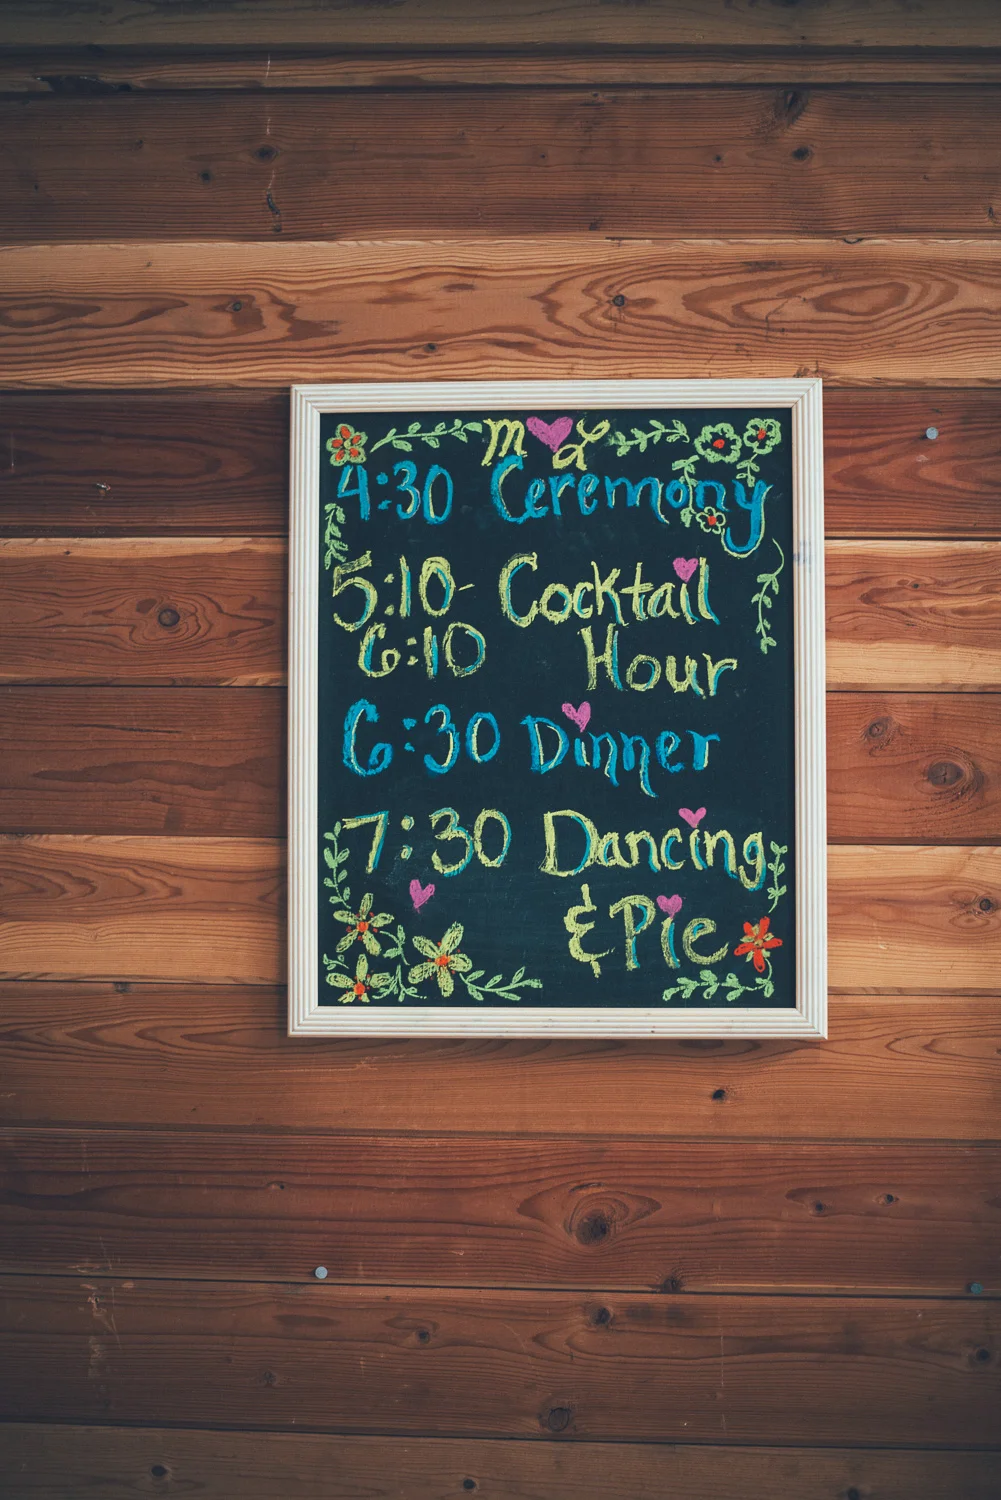 m L
4:30 Ceremony
5:10- Cocktail
6:10 Hour
6:30 Dinner
7:30 Dancing
& Pie